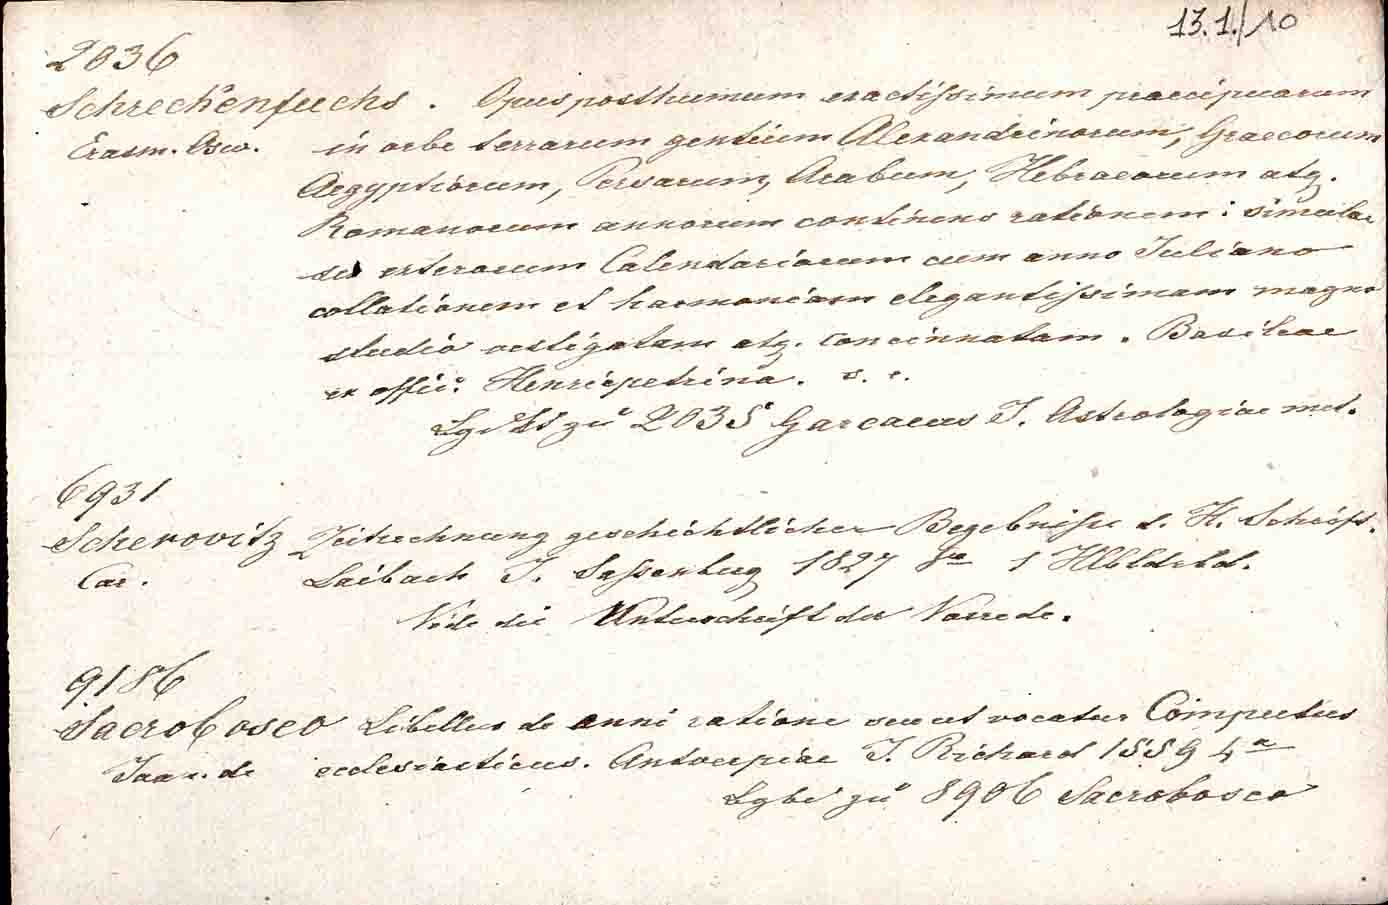 13.1./10
2036
Schreckenfuchs . Opus posthumum exactissimum praecipuarum
Erasm. Osw. in orbe terrarum gentium Alexandrinorum, Graecorum
Aegyptiorum, Persarum, Arabum, Hebraeorum atq.
Romanorum annorum continens rationem: simulac
exterorum Calendariorum cum anno Juliano
collationem et harmoniam elegantissimam magno
studio vestigatam atq. concinnatam. Basileae
ex offic. Henricpetrina. s. a.
zu 2035 Garcaeus J. Astrologiae met.
6931
Scherovitz Zeitrechnung geschichtlicher Begebnisse
Car. Laibach J. Sassenberg 1827 8va 1 Hlbldrbd.
Vide die Unterschrift der Vorrede.
9186
Sacrobosco Libellus de anni ratione seu ut vocatur Computus
Joan. de ecclesiasticus. Antverpiae J. Richard 1559 4a
zu 8906 Sacrobosco